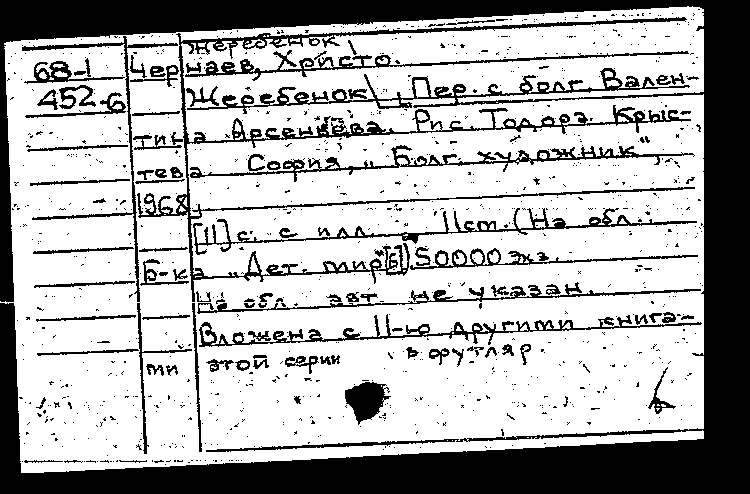 Жеребенок \
68-1 Чернаев, Христо.
452-6 Жеребенок \ , Пер. с болг. Вален-
тина Арсеньева. Рис. Тодора Крыс-
тева София, „Болг. художник“,
1968,
[11] с. с илл. 11 см. (На обл.:
Б-ка „Дет. мир“ [6]). 50000 экз.
На обл. авт. не указан.
Вложена с 11-ю другими книга-
ми этой серии в футляр.